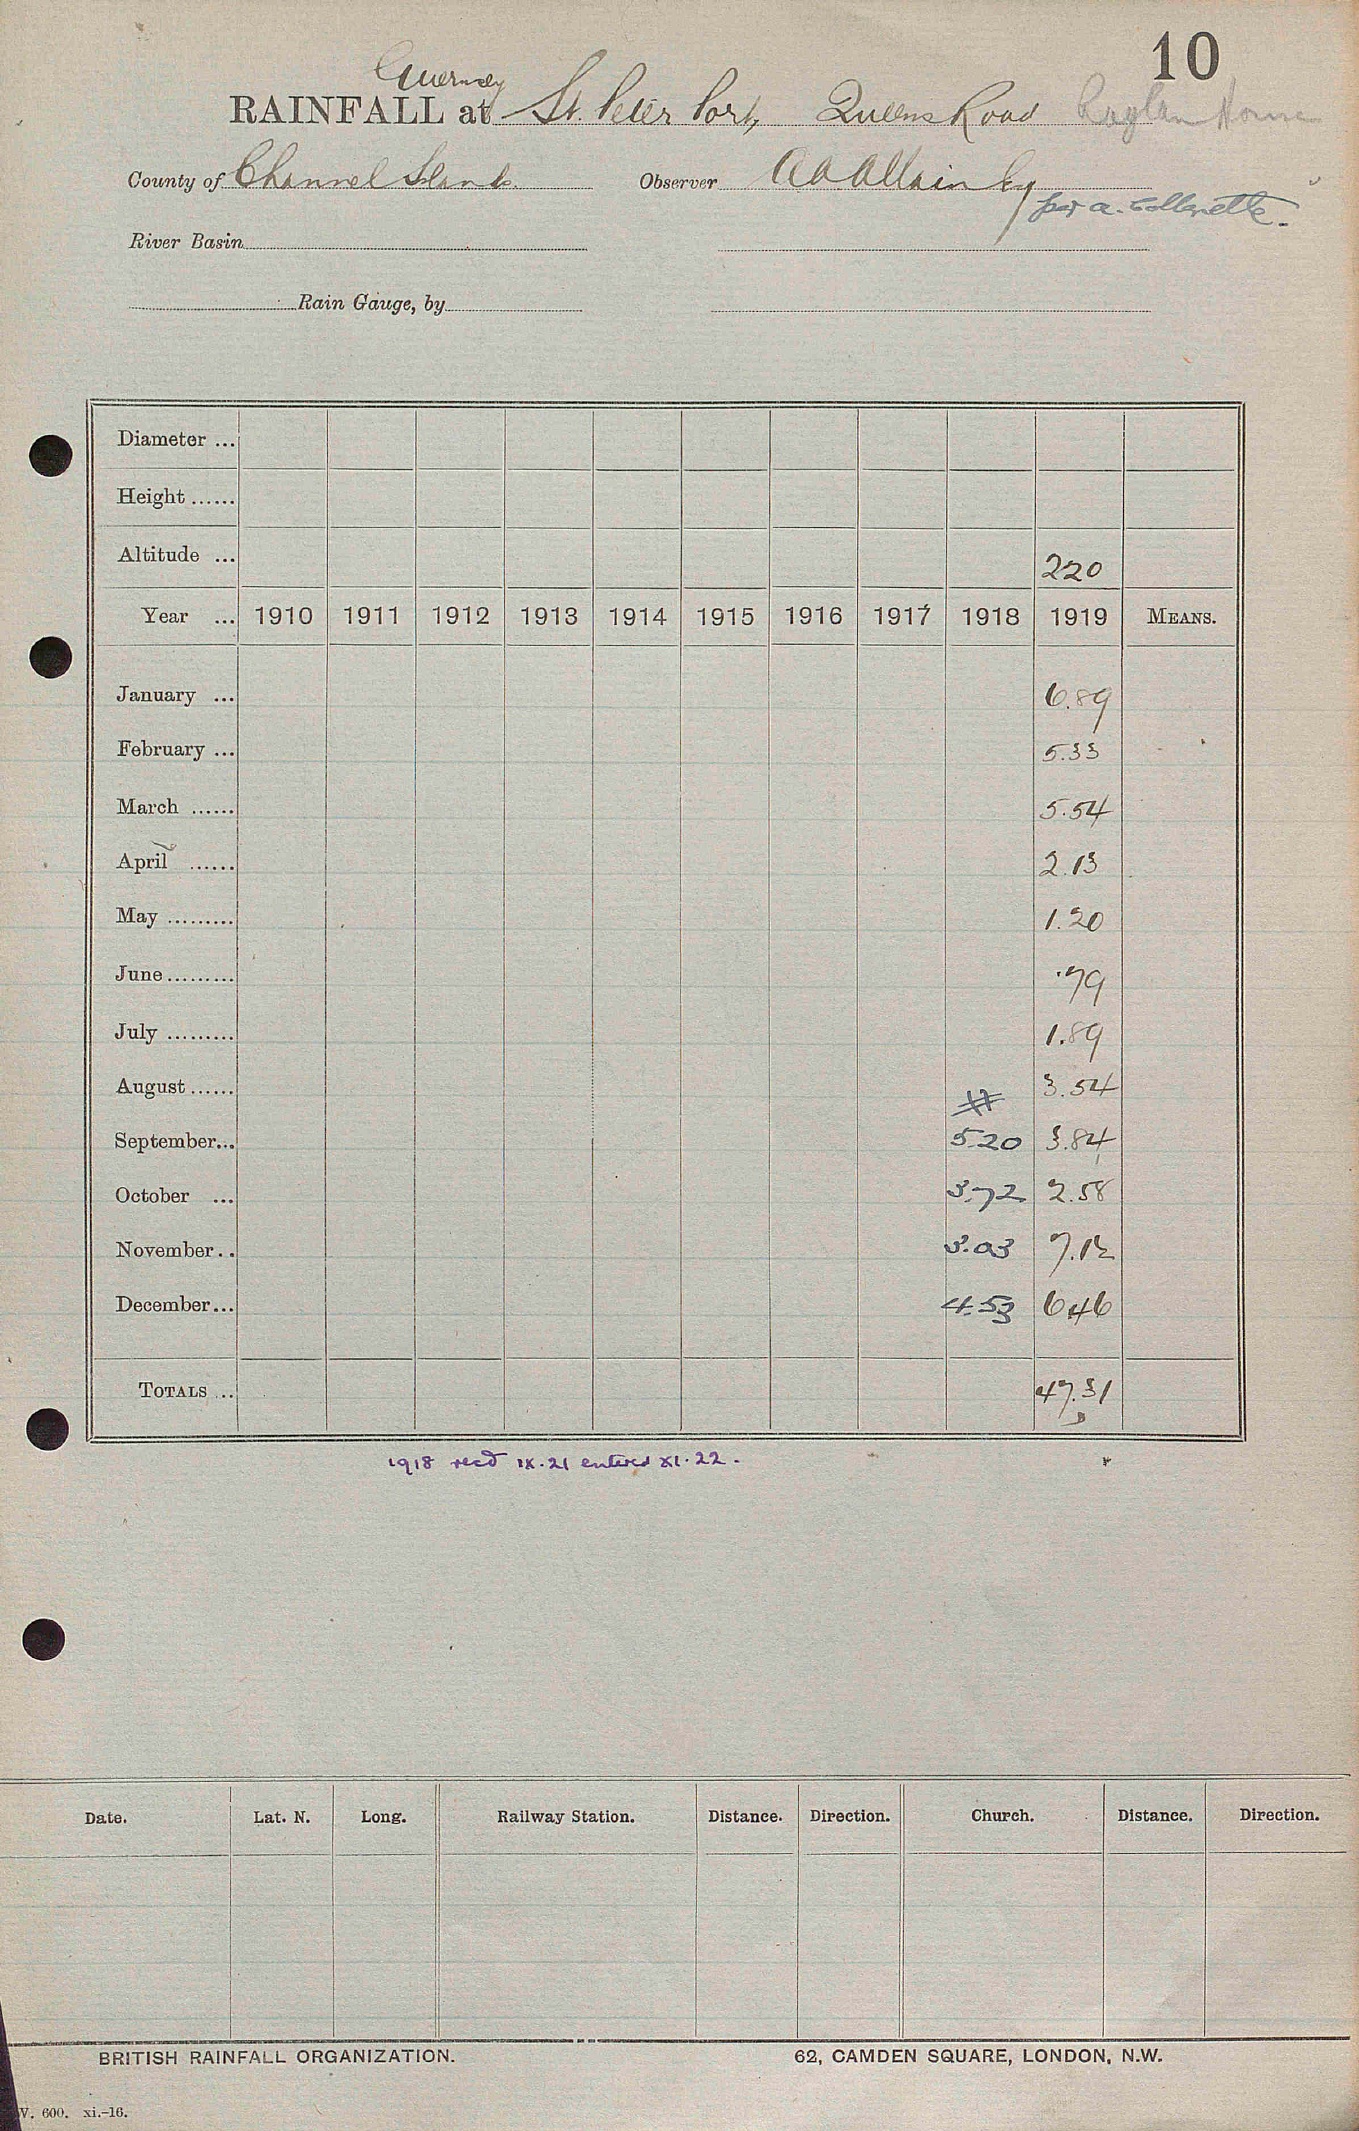 10
Guernsey
RAINFALL at St. Peter Port, Queens Road Raglan House
County of Channel Islands. Observer A. Allain Esq
per A. Collenette.
River Basin
Rain Gauge, by
Diameter ...
Height ......
Altitude ... 220
Year ... 1910 1911 1912 1913 1914 1915 1916 1917 1918 1919 MEANS.
January ... 6.89
February ... 5.33
March ...... 5.54
April ...... 2.13
May ......... 1.20
June ......... .79
July ......... 1.89
August ...... # 3.54
September... 5.20 3.84
October ... 3.72 2.58
November.. 3.03 7.12
December... 4.53 6.46
TOTALS ... 47.31
1918 recd IX.21 entered XI.22.
Date. Lat. N. Long. Railway Station. Distance. Direction. Church. Distance. Direction.
BRITISH RAINFALL ORGANIZATION. 62, CAMDEN SQUARE, LONDON, N.W.
V. 600. xi.-16.